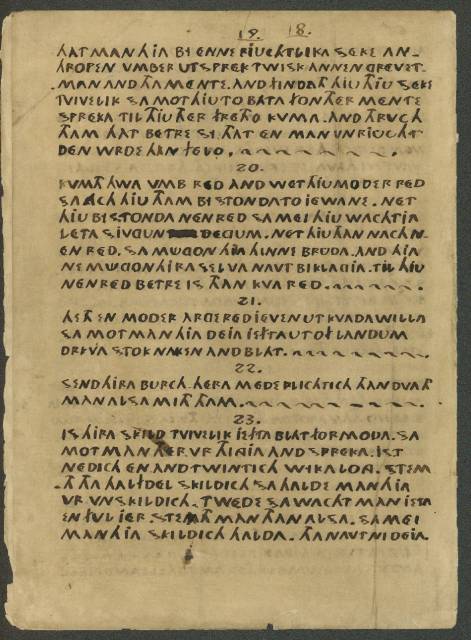 19. 18.
HAT MAN HJA BI ENNE RJUCHTLIKA SEKE AN-
HROPEN VMBER UTSPREK TWISK AN NEN GREVET-
MAN AND THA MENTE. AND FINDATH HJU THJU SEKE
TVIVELIK SA MOT HJU TO BATA FON THER MENTE
SPREKA TIL THJU THER FRETHO KVMA. AND THRVCH
THAM THAT BETRE SI. THAT EN MAN UN RJUCHT
DEN WRDE THAN FELO.
20.
KVMTH HWA VMB RED AND WET HJU MODER RED
SA ACH HJU THAM BISTONDA TO JEWANE. NET
HJU BISTONDA NEN RED SA MEI HJU WACHTJA
LETA SJVGUN DEGUM. NET HJU THAN NACH N-
EN RED. SA MUGON HJA HINNE BRUDA. AND HJA
NE MUGON HIRA SELVA NAVT BIKLAGJA. TIL HJU
NEN RED BETRE IS THAN KVA RED.
21.
HETH EN MODER ARGE RED JEVEN UT KVADA WILLA
SA MOT MAN HJA DEJA JEFTA UT OF LANDUM
DRYVA STOKNAKEN AND BLAT.
22.
SEND HIRA BURCH-HERA MEDEPLICHTICH THAN DVATH
MAN ALSA MITH THAM.
23.
IS HIRA SKILD TVIVELIK JEFTA BLAT FORMODA. SA
MOT MAN THER VR THINGJA AND SPREKA. IST
NEDICH EN AND TWINTICH WIKA LONG. STEM-
TH THA HALF DEL SKILDICH SA HALDE MAN HJA
VR UNSKILDICH. TWEDE SA WACHT MAN JEFTA
EN FUL JER. STEMTH MAN THAN ALSA. SA MEI
MAN HJA SKILDICH HALDA. THA NAVT NI DEJA.